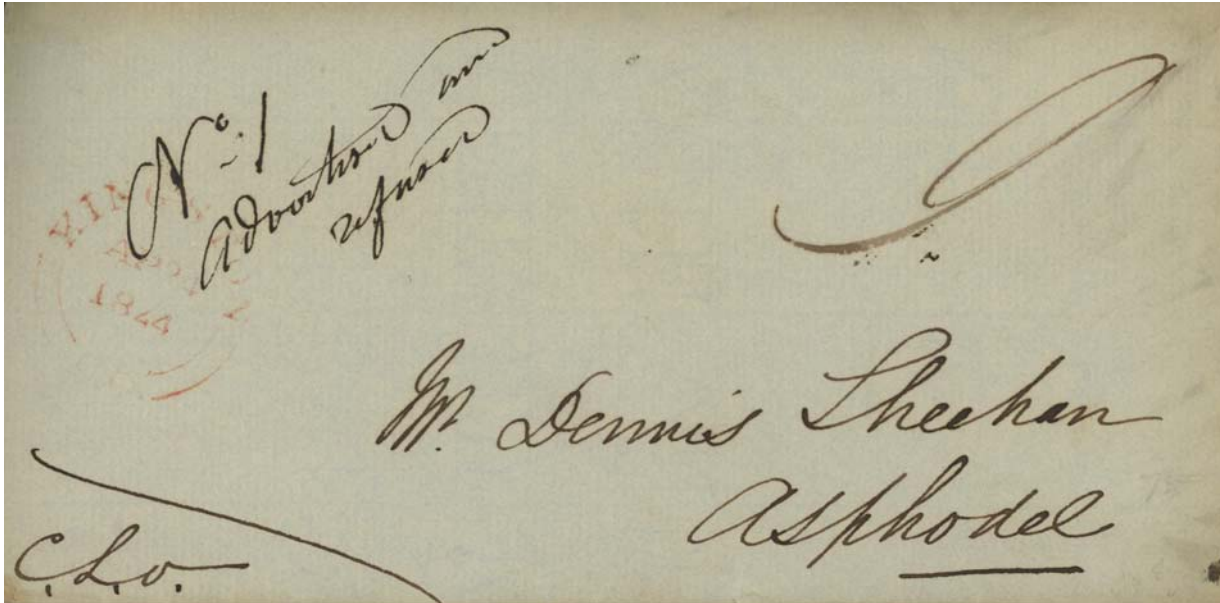 No. 1
Advertised and
refused
KINGS
AP
1844
Mr. Dennis Sheehan
Asphodel
C.L.O.